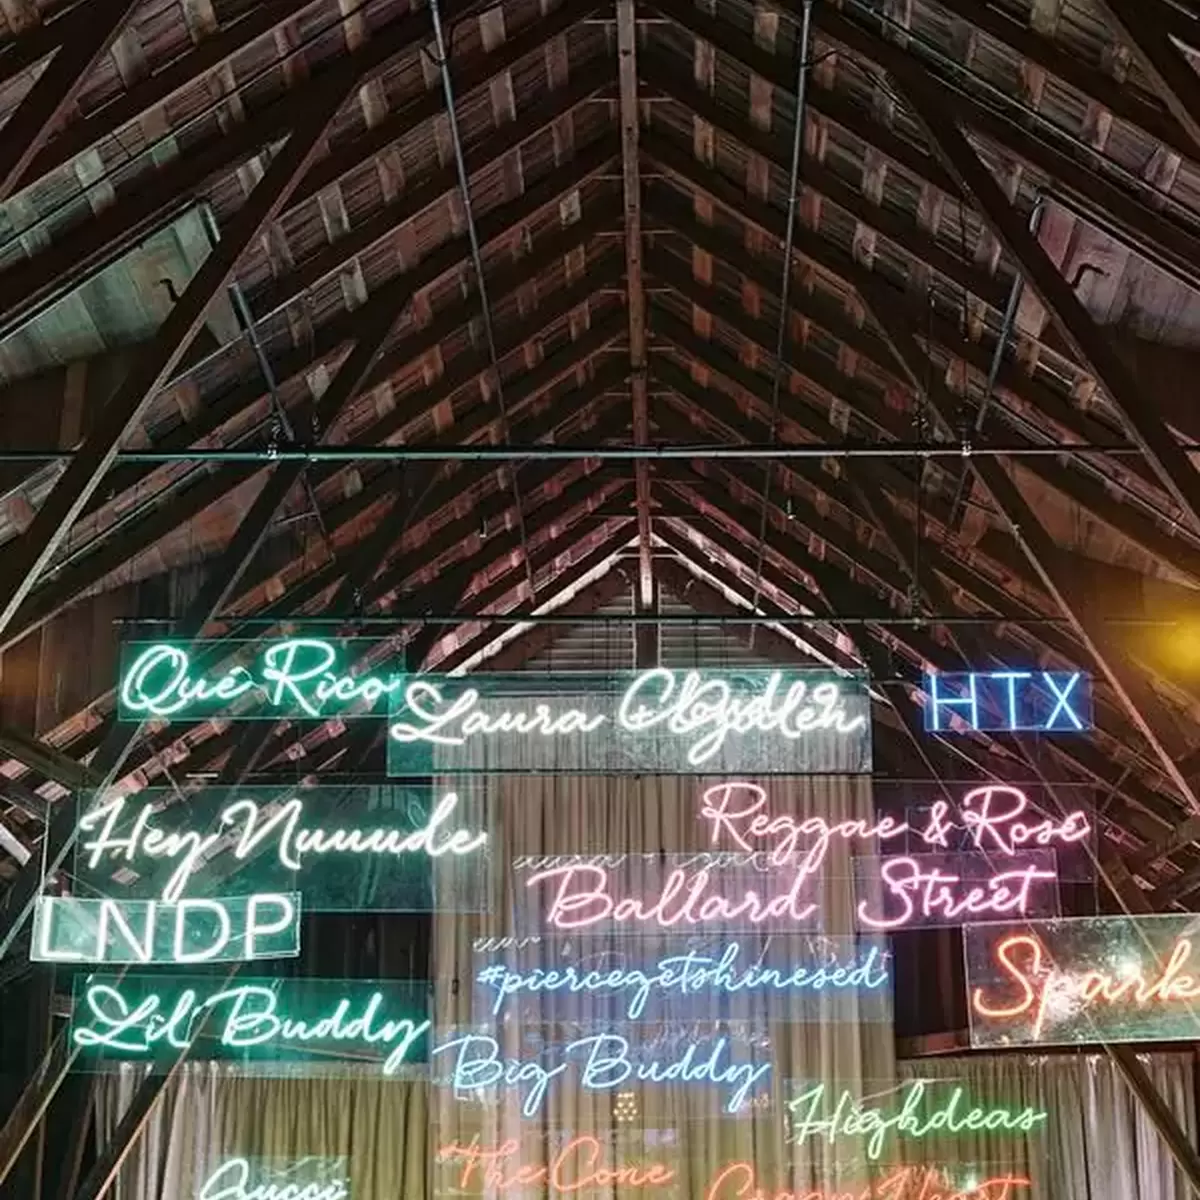 Qué Rico
Laura
HTX
Hey Nuuude
Reggae & Rosé
LNDP
Ballard Street
Spark
#piercegetshinesed
Lil' Buddy
Big Buddy
Highdeas
The Cone
Gucci